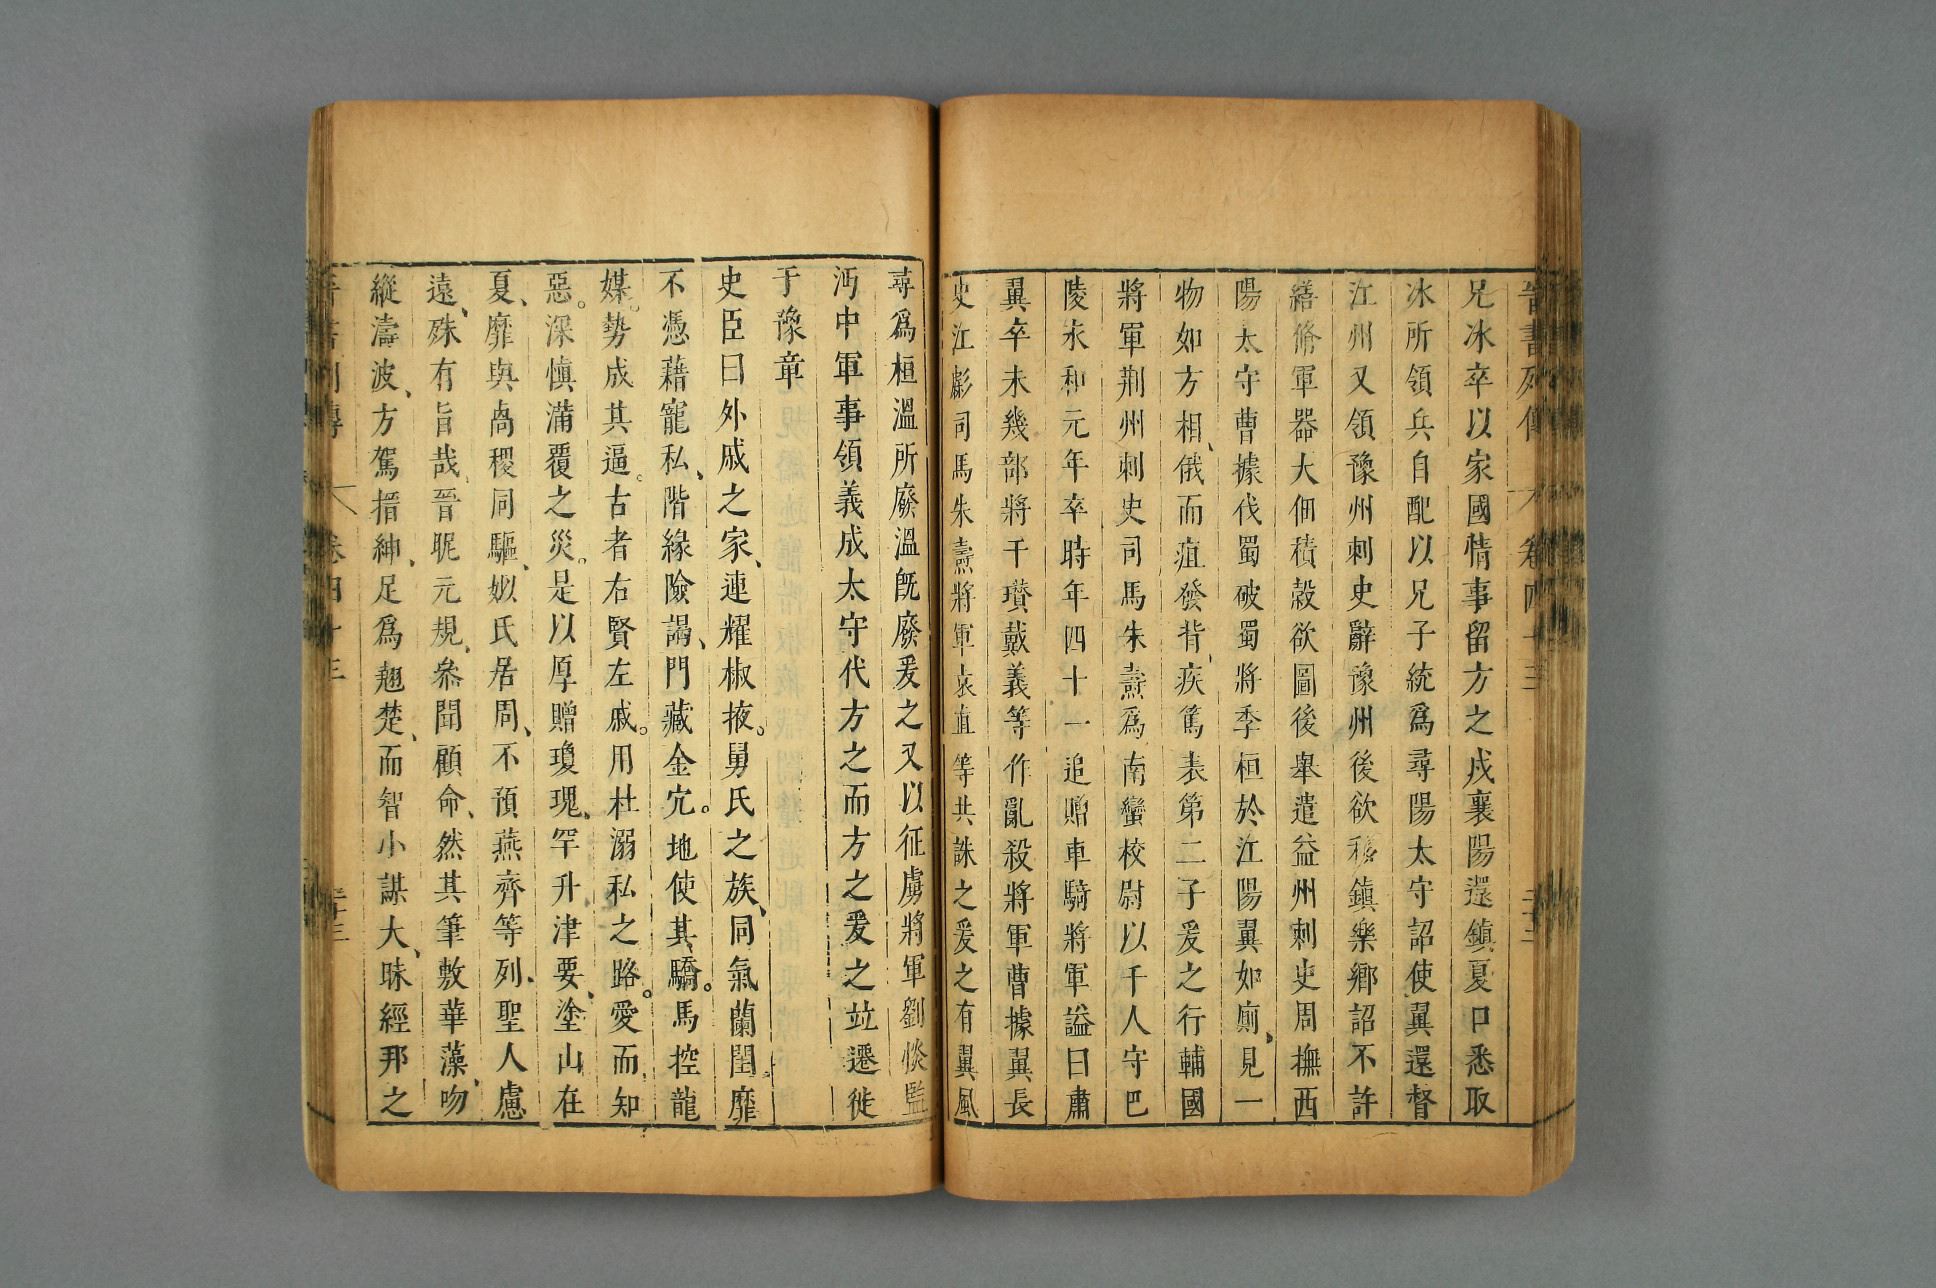 晉書列傳 卷四十三 二十二
兄冰卒以家國情事留方之戍襄陽還鎮夏口悉取
冰所領兵自配以兄子統爲尋陽太守詔使翼還督
江州又領豫州刺史辭豫州後欲移鎮樂鄉詔不許
繕脩軍器大佃積穀欲圖後舉遣益州刺史周撫西
陽太守曹據伐蜀破蜀將李桓於江陽翼如廁、見一
物如方相、俄而疽發背、疾篤表第二子爰之行輔國
將軍荆州刺史司馬朱燾爲南蠻校尉以千人守巴
陵永和元年卒時年四十一追贈車騎將軍謚曰肅
翼卒未幾部將干瓚戴羲等作亂殺將軍曹據翼長
史江虨司馬朱燾將軍袁真等共誅之爰之有翼風
尋爲桓溫所廢溫旣廢爰之又以征虜將軍劉惔監
沔中軍事領義成太守代方之而方之爰之竝遷徙
于豫章
史臣曰外戚之家、連耀椒掖。舅氏之族、同氣蘭閨。靡
不憑藉寵私、階緣險謁、門藏金穴。地使其驕。馬控龍
媒。勢成其逼。古者右賢左戚。用杜溺私之路。愛而知
惡。深慎滿覆之災。是以厚贈瓊瑰、罕升津要、塗山在
夏、靡與卨稷同驅、姒氏居周、不預燕齊等列、聖人慮
遠、殊有旨哉、晉昵元規、叅聞顧命、然其筆敷華藻、吻
縱濤波、方駕搢紳、足爲翹楚、而智小謀大、昧經邦之
晉書列傳 卷四十三 二十三